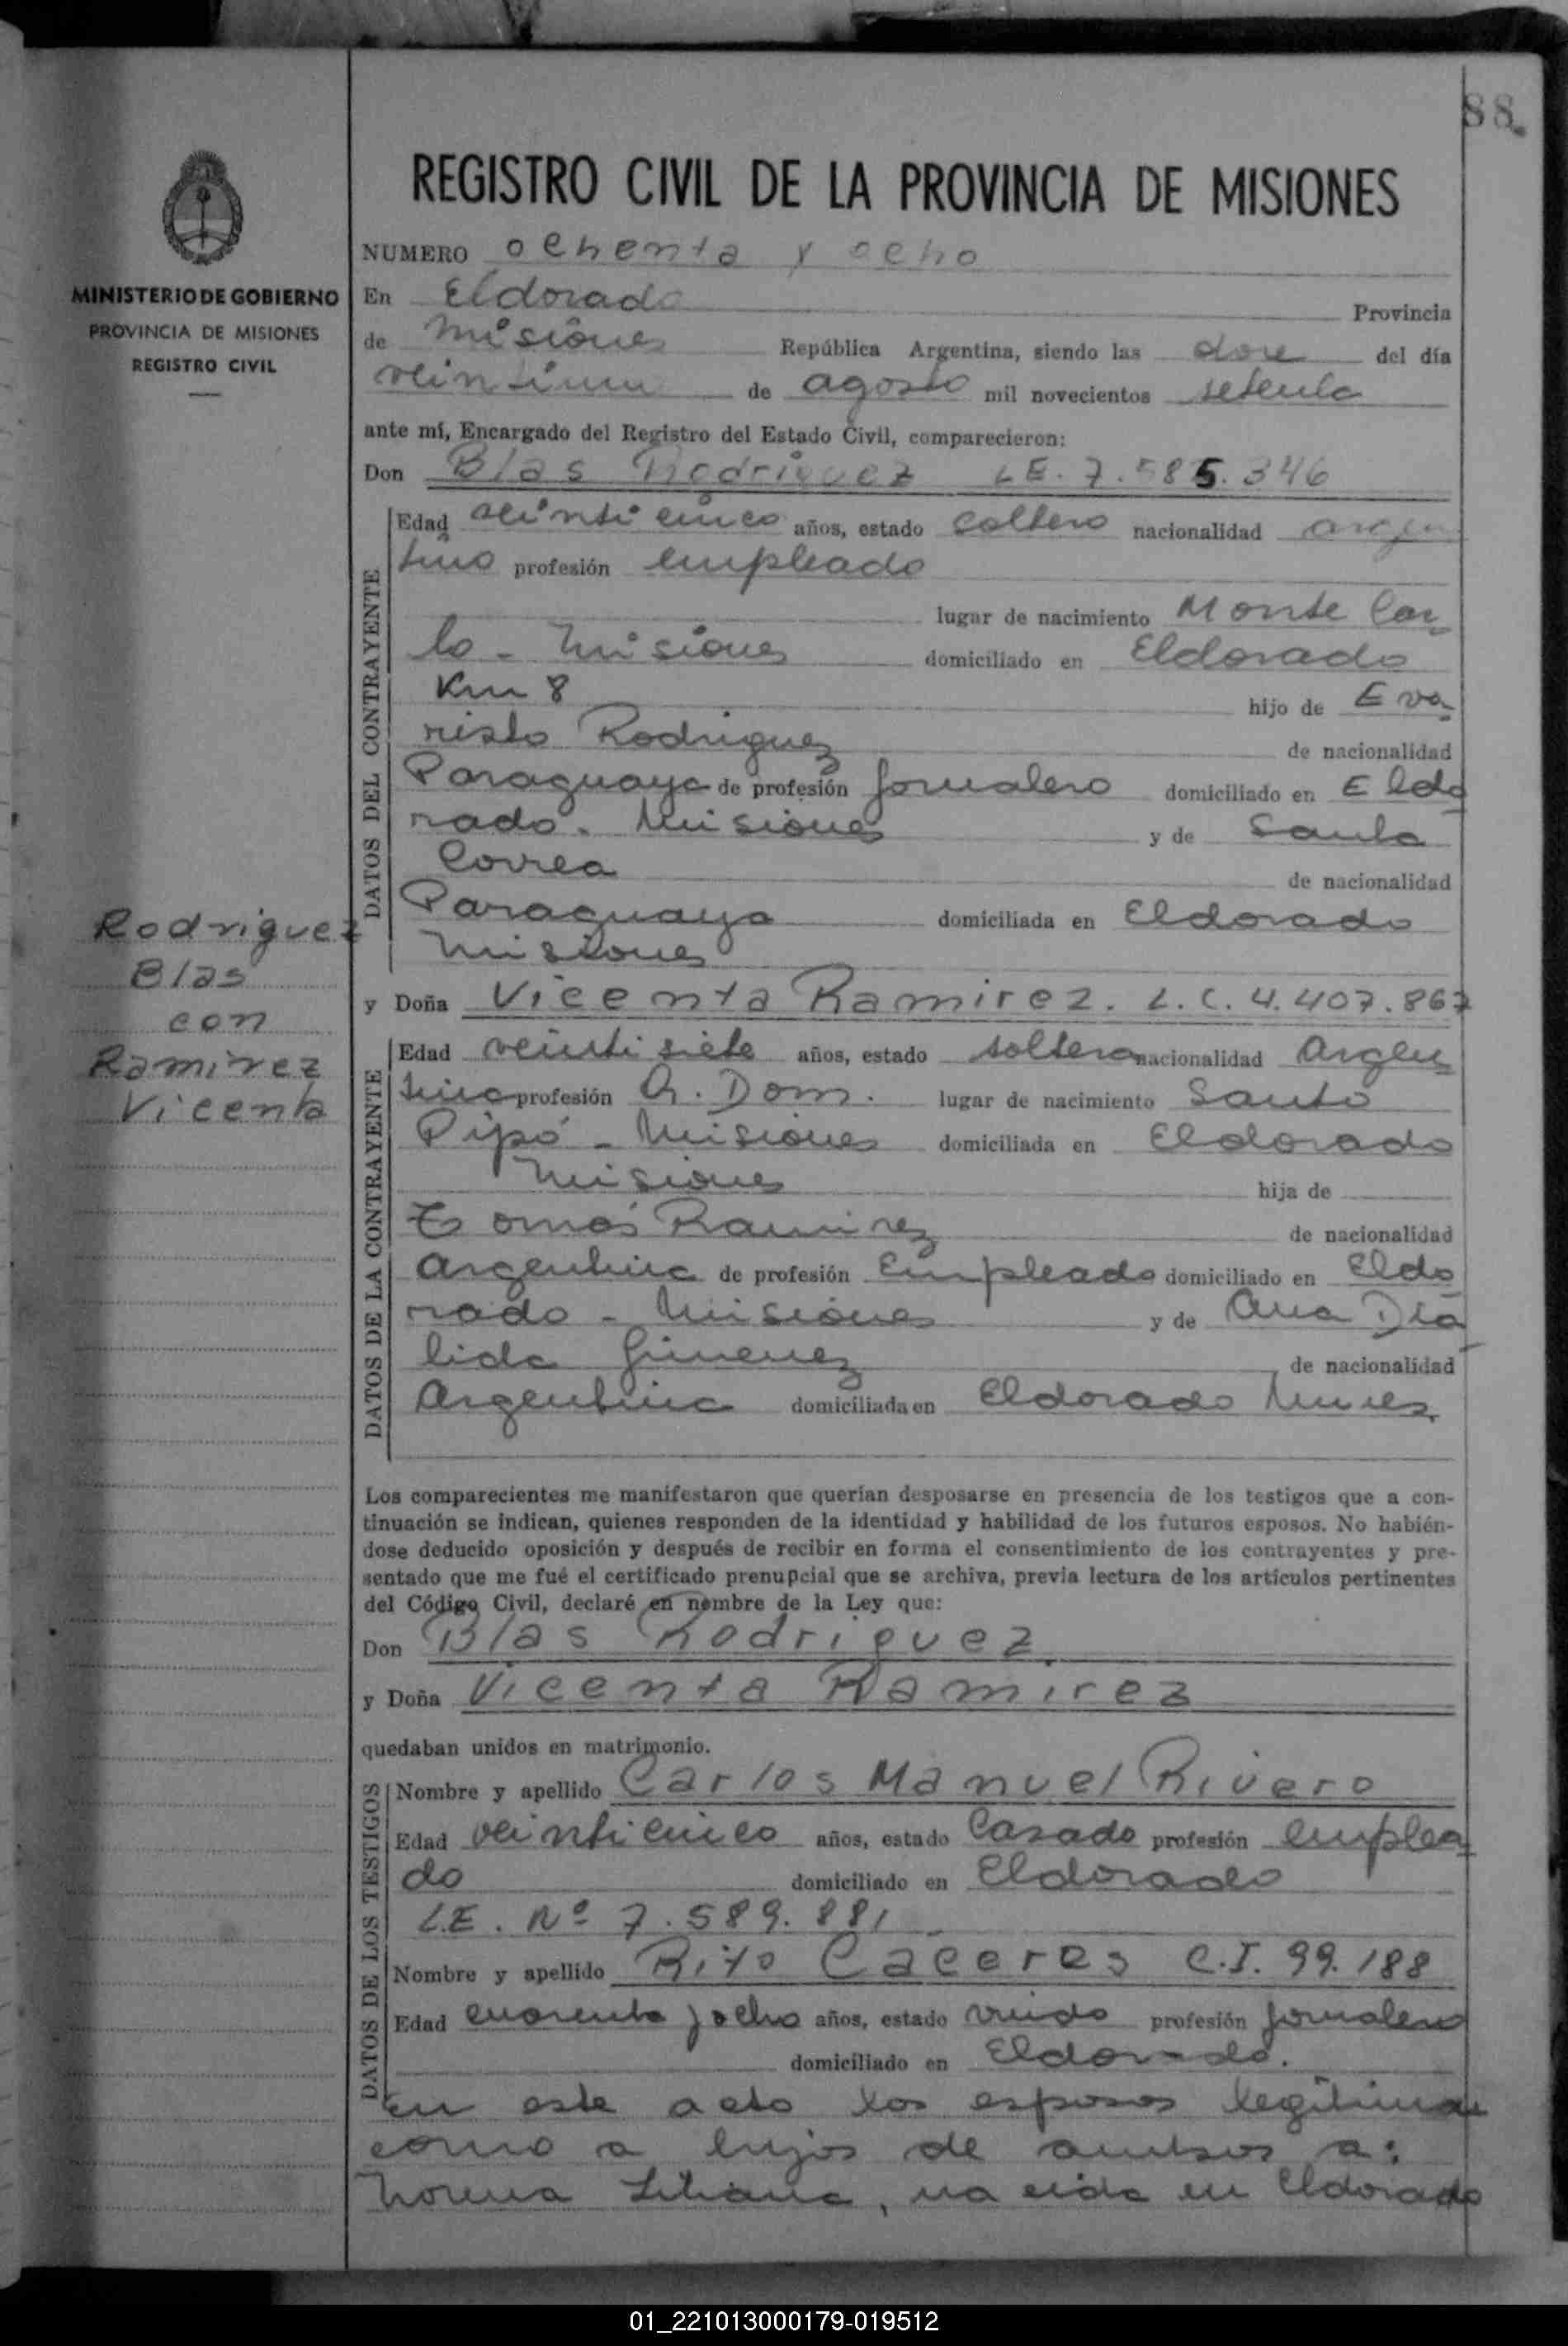 88.
REGISTRO CIVIL DE LA PROVINCIA DE MISIONES
MINISTERIO DE GOBIERNO
PROVINCIA DE MISIONES
REGISTRO CIVIL
NUMERO ochenta y ocho
En Eldorado Provincia
de Misiones República Argentina, siendo las doce del día
veintiuno de agosto mil novecientos setenta
ante mí, Encargado del Registro del Estado Civil, comparecieron:
Don Blas Rodriguez LE. 7.585.346
DATOS DEL CONTRAYENTE
Edad veinticinco años, estado soltero nacionalidad argen
tino profesión empleado
lugar de nacimiento Monte Car
lo - Misiones domiciliado en Eldorado
Km 8 hijo de Eva
risto Rodriguez de nacionalidad
Paraguaya de profesión Jornalero domiciliado en Eldo
rado. Misiones y de Santa
Correa de nacionalidad
Paraguaya domiciliada en Eldorado
Misiones
Rodriguez
Blas
con
Ramirez
Vicenta
y Doña Vicenta Ramirez. L.C. 4.407.867
DATOS DE LA CONTRAYENTE
Edad veintisiete años, estado soltera nacionalidad Argen
tina profesión Q. Dom. lugar de nacimiento Santo
Pipó - Misiones domiciliada en Eldorado
Misiones hija de
Tomás Ramirez de nacionalidad
Argentina de profesión Empleado domiciliado en Eldo
rado - Misiones y de Ana
Gimenez de nacionalidad
Argentina domiciliada en Eldorado
Los comparecientes me manifestaron que querían desposarse en presencia de los testigos que a con-
tinuación se indican, quienes responden de la identidad y habilidad de los futuros esposos. No habién-
dose deducido oposición y después de recibir en forma el consentimiento de los contrayentes y pre-
sentado que me fué el certificado prenupcial que se archiva, previa lectura de los artículos pertinentes
del Código Civil, declaré en nombre de la Ley que:
Don Blas Rodriguez
y Doña Vicenta Ramirez
quedaban unidos en matrimonio.
DATOS DE LOS TESTIGOS
Nombre y apellido Carlos Manuel Rivero
Edad veinticinco años, estado Casado profesión emplea
do domiciliado en Eldorado
L.E. Nº 7.589.881
Nombre y apellido Rito Caceres C.I. 99.188
Edad cuarenta y ocho años, estado viudo profesión Jornalero
domiciliado en Eldorado.
En este acto los esposos legitiman
como a hijos de ambos a:
Norma Liliana, nacida en Eldorado
01_221013000179-019512